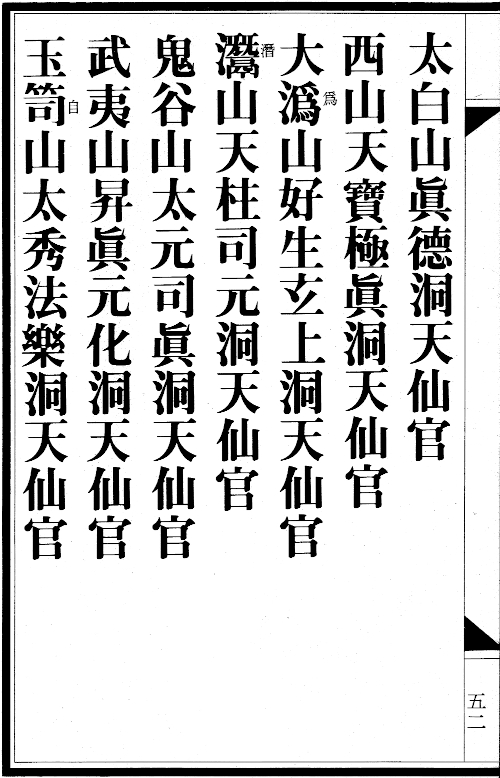 太白山眞德洞天仙官
西山天寶極眞洞天仙官
大潙爲山好生玄上洞天仙官
灊潛山天柱司元洞天仙官
鬼谷山太元司眞洞天仙官
武夷山昇眞元化洞天仙官
玉笥自山太秀法樂洞天仙官
五二